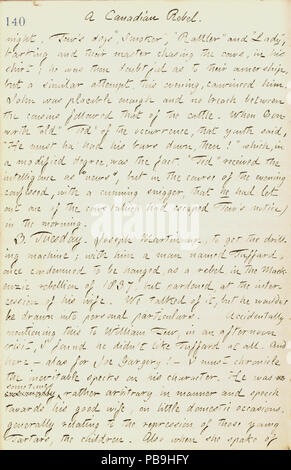 140
A Canadian Rebel.
night, Tew's dogs, "Smoker," "Rattler" and "Lady",
barking and their master chasing the cows, in his
shirt; he was then doubtful as to their ownership,
but a similar attempt, this evening, convinced him.
John was placable enough and no breach between
the cousins followed that of the cattle. When Con-
worth told "Ted" of the occurrence, that youth said,
"He must ha' had his bars down, then!" which, in
a modified degree, was the fact. "Ted" received the
intelligence as "news", but in the course of the evening
confessed, with a cunning snigger, that he had let
out one of the cows (which had escaped Tew's notice)
in the morning.
3. Tuesday. Joseph Martin up, to get the drill-
ing machine; with him a man named Tufford,
once condemned to be hanged as a rebel in the Mack-
enzie rebellion of 1837, but pardoned at the inter-
cession of his wife. We talked of it, but he wouldn't
be drawn into personal particulars. Accidentally
mentioning this to William Tew, in an afternoon
visit, I found he didn't like Tufford at all. And
here - alas for Joe Gargery! - I must chronicle
the inevitable specks on his character. He was
sometimes
rather arbitrary in manner and speech
towards his good wife, on little domestic occasions,
generally relating to the repression of those young
Tartars, the children. Also when she spoke of
alamy
alamy
Image ID: PB9HFY
www.alamy.com